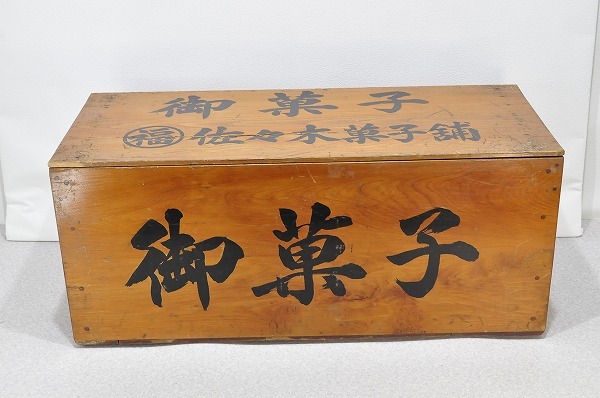 御菓子
福 佐々木菓子舗
御菓子